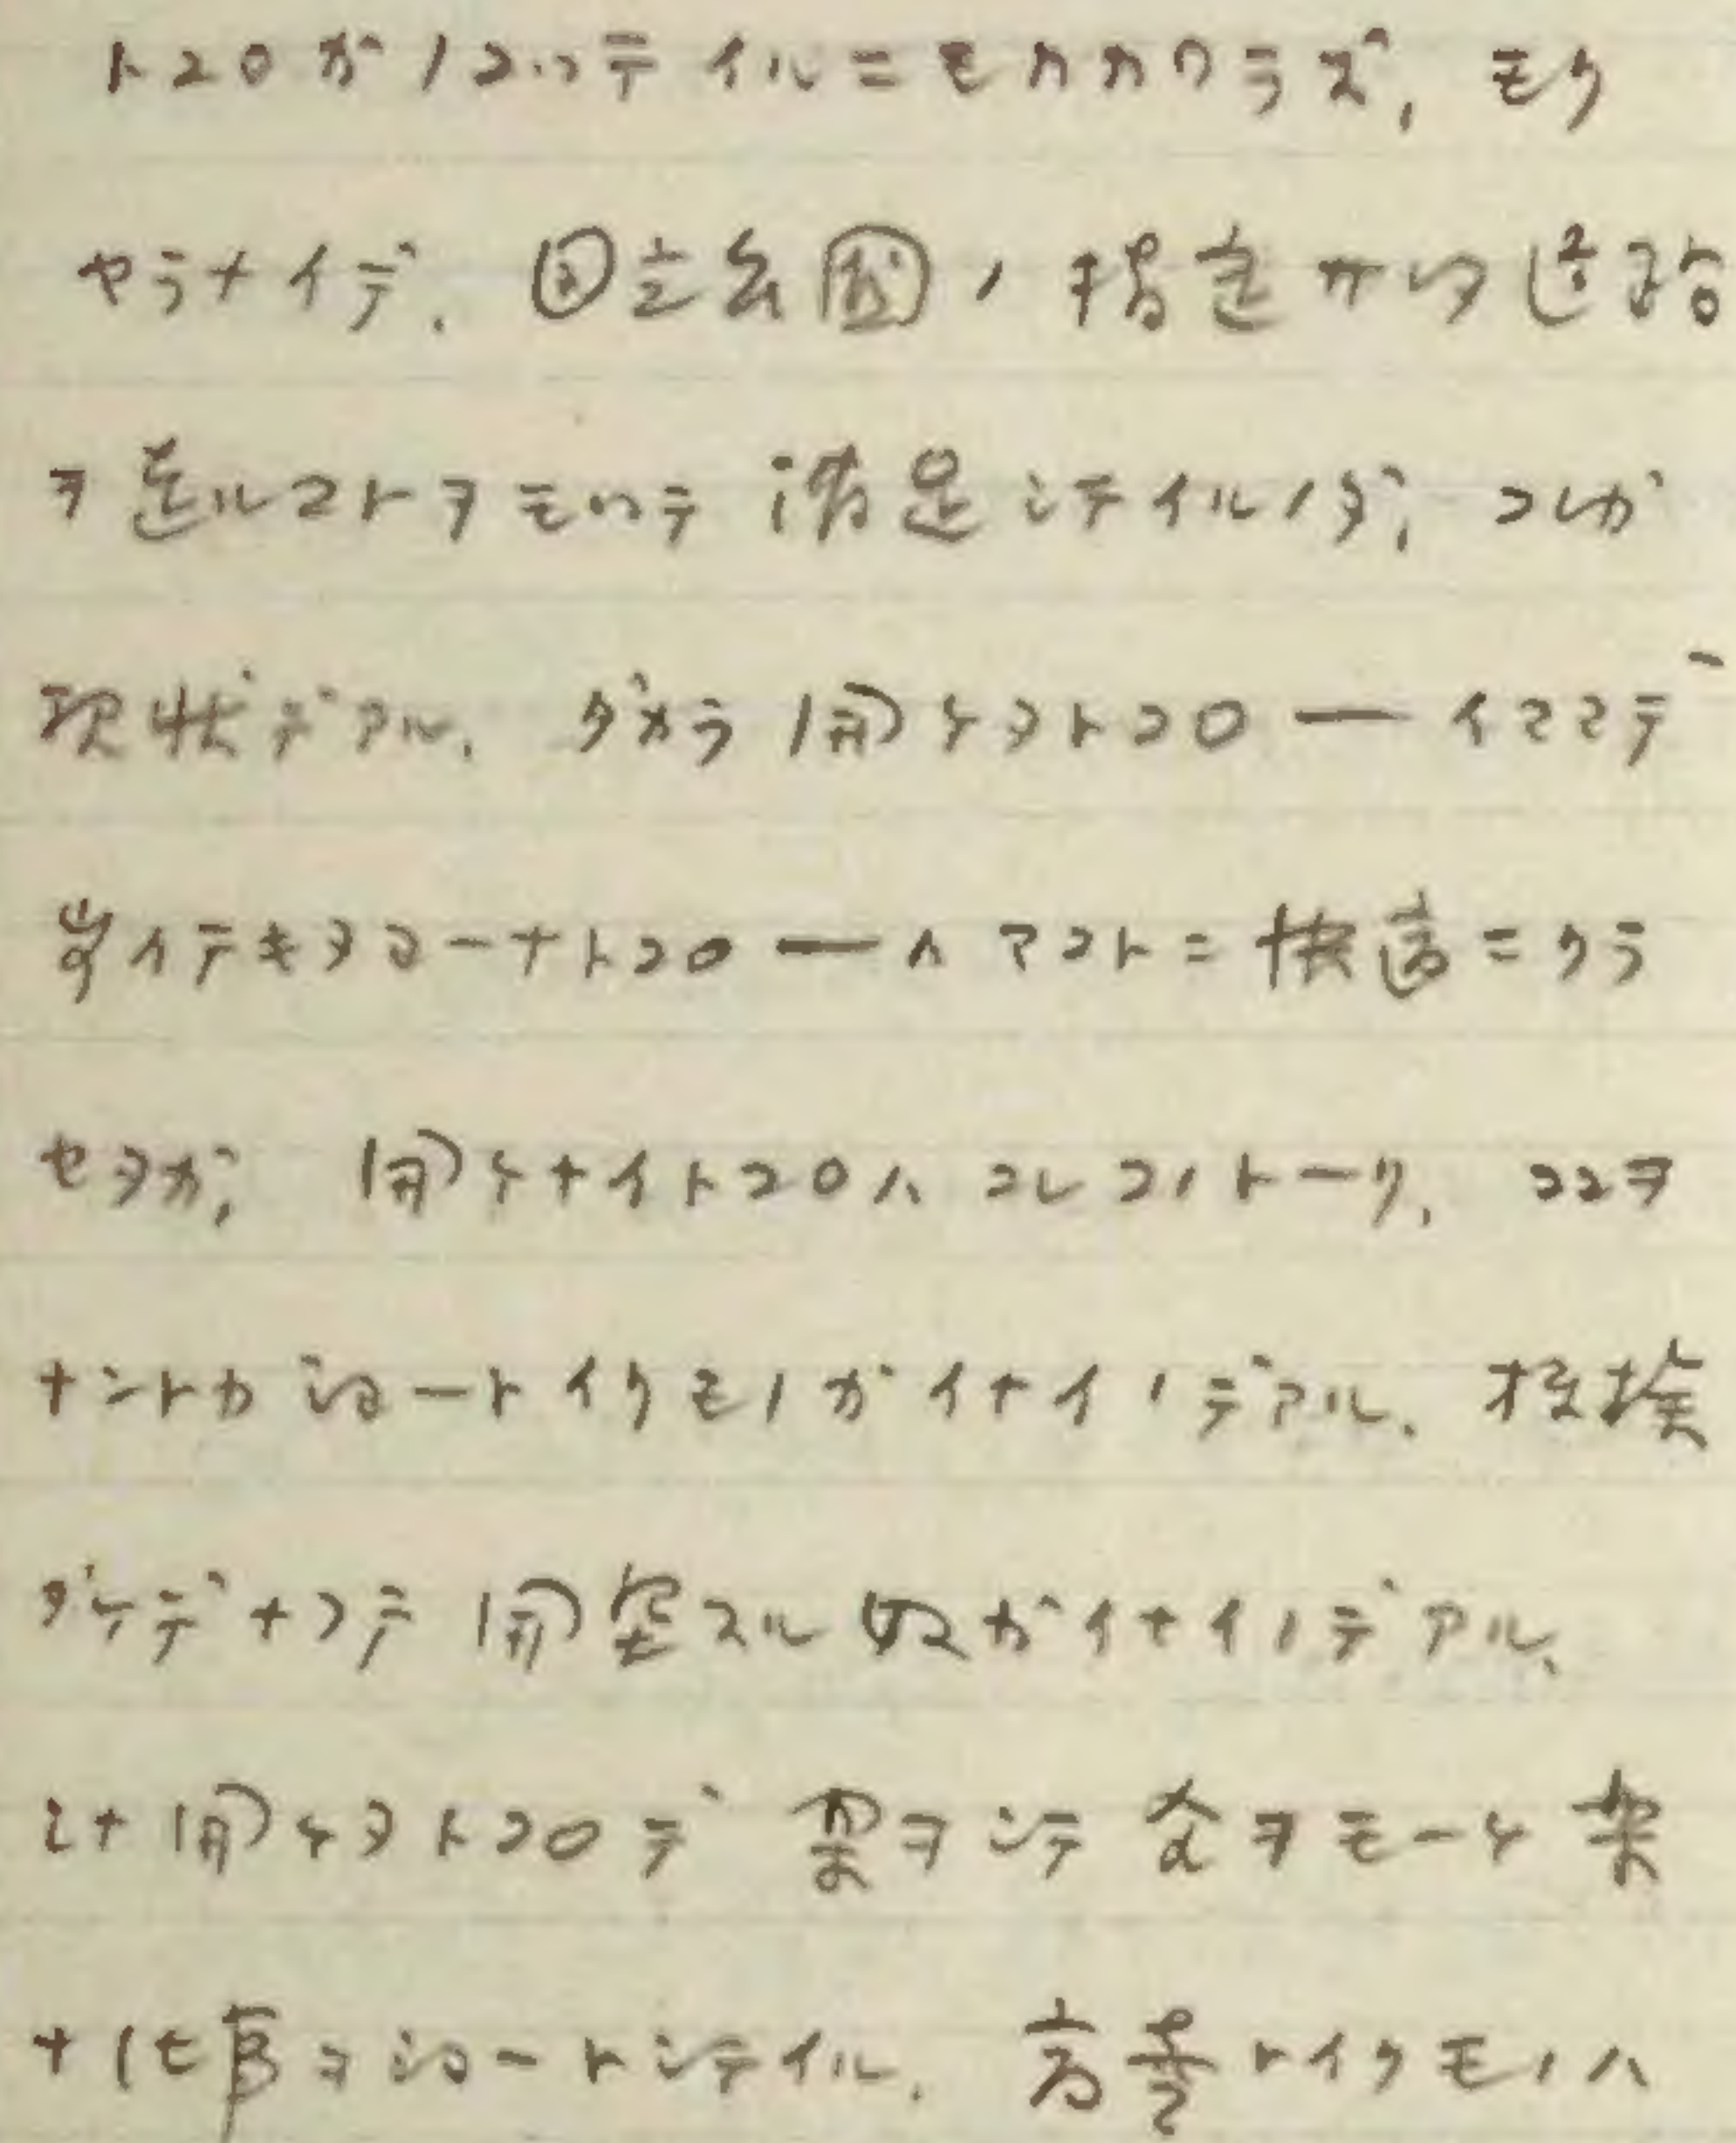 トコロガノコッテイルニモカカワラズ, モク
セラナイデ. 国立公園ノ指定ガイノ道路
ヲ造ルコトヲモッテ満足シテイルノダ, コレガ
現状デアル. ダカラ開ケタトコロ — イママデ
ガイテキタヨーナトコロ — ハマコトニ快適ニクラ
セヲガ, 開ケナイトコロハコレコノトーリ, ココヲ
ナントカショートイクモノガイナイノデアル. 投
ダケデナクテ開スル奴ガイナイノデアル.
ミナ開ケタトコロデヲシテ金ヲモーケ楽
ナ仕事ヲショートシテイル. トイクモノハ